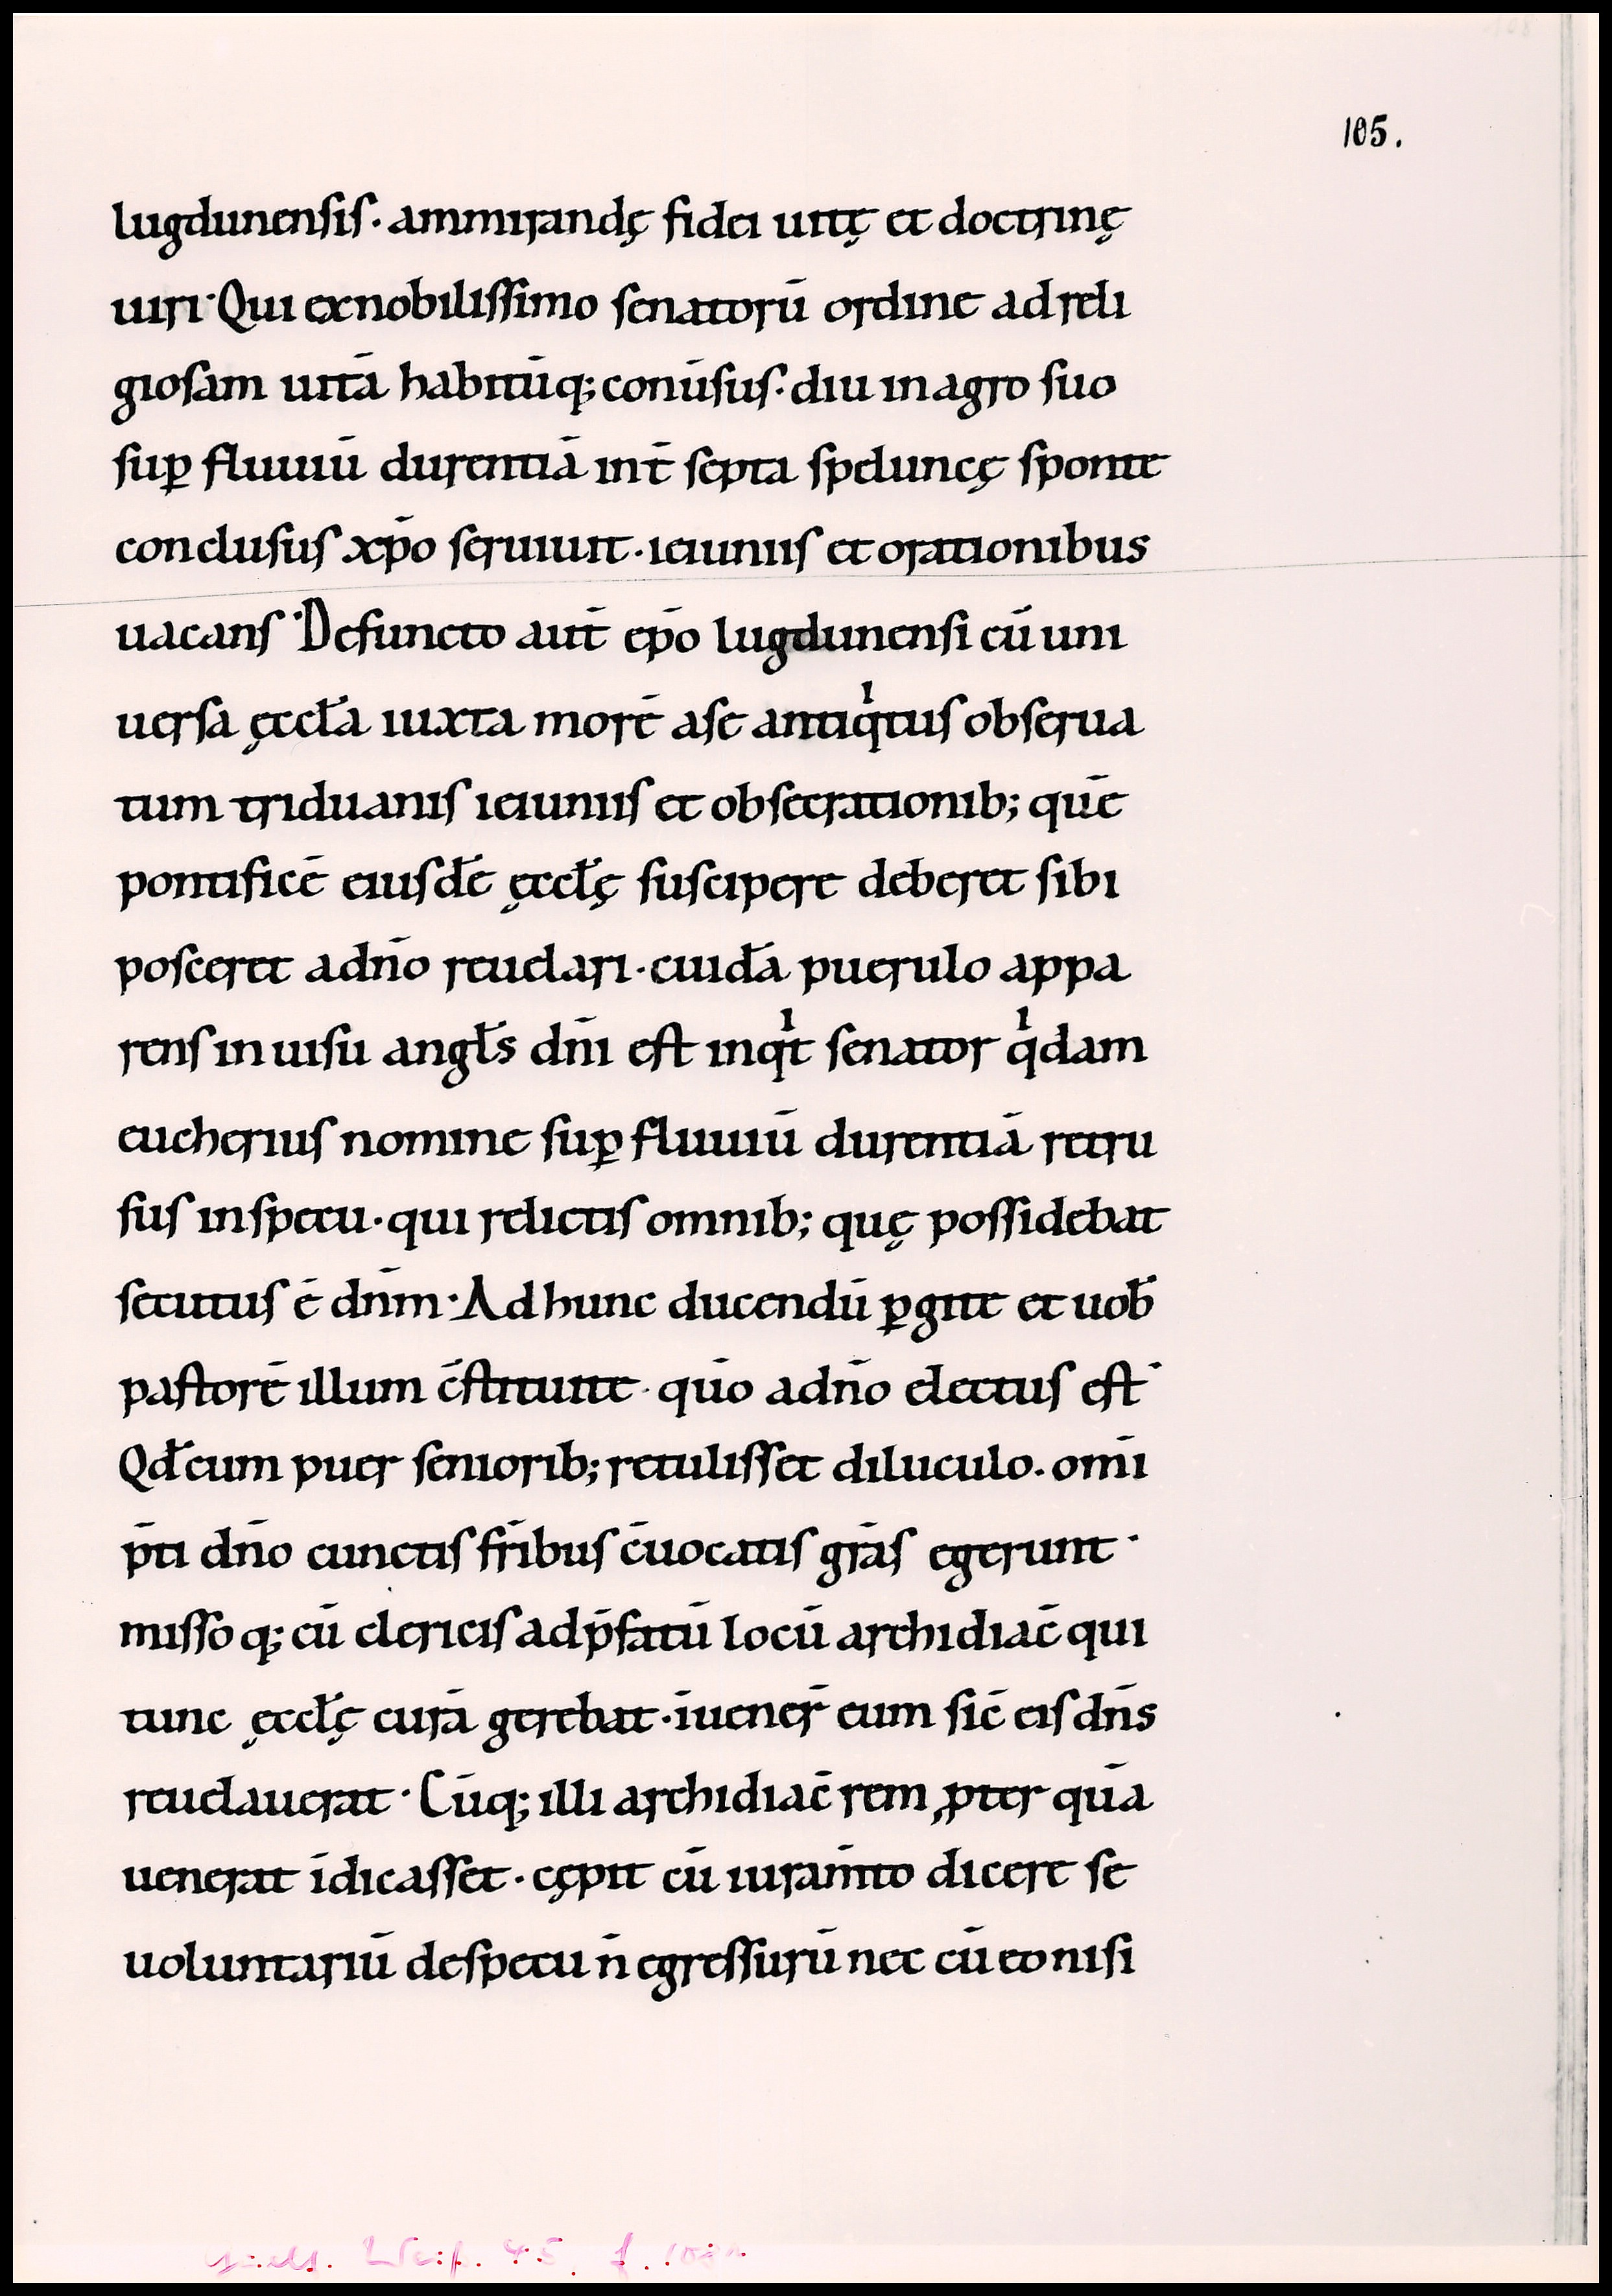 105.
lugdunensis· ammirandę fidei uitę et doctrinę
uiri· Qui exnobilissimo senatorū ordine ad reli
giosam uitā habitūq; conūsus· diu in agro suo
suꝑ fluuiū durentiā int̄ septa speluncę sponte
conclusus xp̄o seruiuit· ieiuniis et orationibus
uacans· Defuncto aut̄ ep̄o lugdunensi cū uni
uersa ęccła iuxta morē ase antiqͥtus obserua
tum triduanis ieiuniis et obsecrationib; quē
pontificē eiusdē ęccłę suscipere deberet sibi
posceret adn̄o reuelari· cuidā puerulo appa
rens in uisu angłs dn̄i est inqͥt senator qͥdam
eucherius nomine suꝑ fluuiū durentiā retru
sus inspecu· qui relictis omnib; quę possidebat
secutus ē dn̄m· Ad hunc ducendū ꝑgite et uob̄
pastorē illum c̄stituite· qūo adn̄o electus est·
Qd̄ cum puer seniorib; retulisset diluculo. om̄i
p̄ti dn̄o cunctis fr̄ibus c̄uocatis gr̄as egerunt·
misso q; cū clericis ad p̄fatū locū archidiac̄ qui
tunc ęccłę curā gerebat· īuener̄ eum sic̄ eis dn̄s
reuelauerat· Cūq; illi archidiac̄ rem ꝓpter quā
uenerat īdicasset· cępit cū iuram̄to dicere se
uoluntariū despecu n̄ egressurū nec cū eo nisi